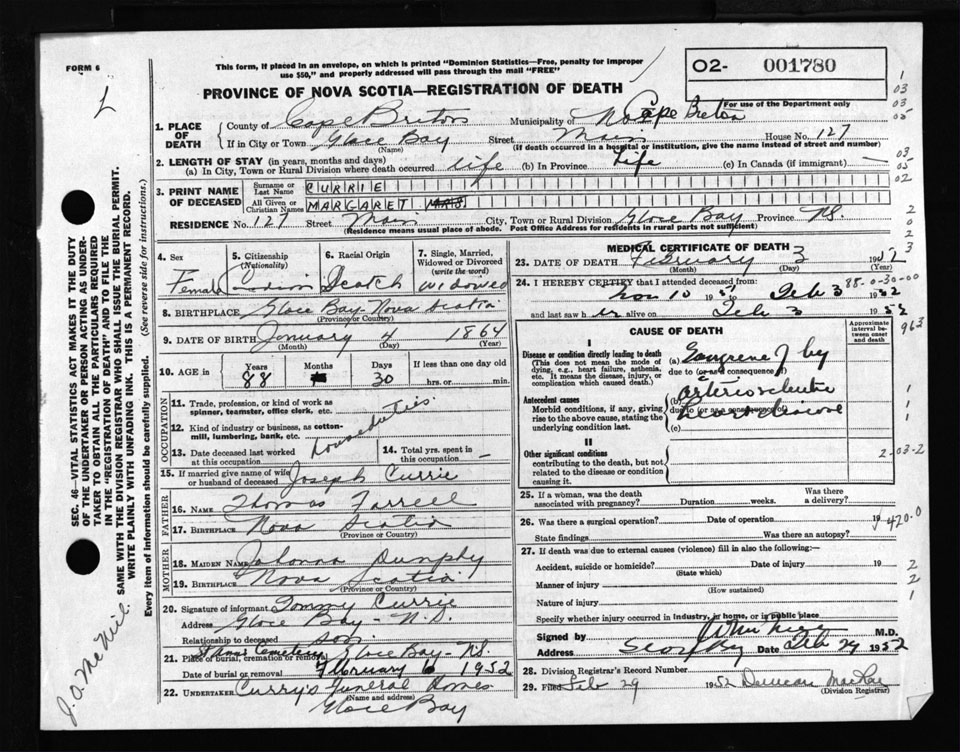 FORM 6
This form, if placed in an envelope, on which is printed "Dominion Statistics—Free, penalty for improper
use $50," and properly addressed will pass through the mail "FREE"
O2- 001780
For use of the Department only
PROVINCE OF NOVA SCOTIA—REGISTRATION OF DEATH
1. PLACE OF DEATH
County of Cape Breton Municipality of Cape Breton
If in City or Town Glace Bay (Name) Street Main House No. 127
(If death occurred in a hospital or institution, give the name instead of street and number)
2. LENGTH OF STAY (in years, months and days)
(a) In City, Town or Rural Division where death occurred life (b) In Province Life (c) In Canada (if immigrant) —
3. PRINT NAME OF DECEASED
Surname or Last Name CURRIE
All Given or Christian Names MARGARET
RESIDENCE No. 127 Street Main City, Town or Rural Division Glace Bay Province N.S.
(Residence means usual place of abode. Post Office Address for residents in rural parts not sufficient)
4. Sex Female
5. Citizenship (Nationality)
6. Racial Origin Scotch
7. Single, Married, Widowed or Divorced (write the word) Widowed
8. BIRTHPLACE Glace Bay - Nova Scotia
(Province or Country)
9. DATE OF BIRTH January 4 1864
(Month) (Day) (Year)
10. AGE in Years 88 Months Days 30 If less than one day old hrs. or min.
OCCUPATION
11. Trade, profession, or kind of work as
spinner, teamster, office clerk, etc.
12. Kind of industry or business, as cotton-
mill, lumbering, bank, etc.
House duties
13. Date deceased last worked
at this occupation
14. Total yrs. spent in
this occupation —
15. If married give name of wife
or husband of deceased Joseph Currie
FATHER
16. NAME Thomas Farrell
17. BIRTHPLACE Nova Scotia
(Province or Country)
MOTHER
18. MAIDEN NAME Johanna Dunphy
19. BIRTHPLACE Nova Scotia
(Province or Country)
20. Signature of informant Tommy Currie
Address Glace Bay - N.S.
Relationship to deceased son
21. Place of burial, cremation or removal St Anns Cemetery Glace Bay - N.S.
Date of burial or removal February 6 1952
22. UNDERTAKER Curry's Funeral Homes
(Name and address)
Glace Bay
MEDICAL CERTIFICATE OF DEATH
23. DATE OF DEATH February 3 1952
(Month) (Day) (Year)
24. I HEREBY CERTIFY that I attended deceased from:
Nov 10 1951 to Feb 3 1952
88-0-30-00
and last saw her alive on Feb 3 1952
CAUSE OF DEATH
Approximate interval between onset and death
963
I
Disease or condition directly leading to death
(This does not mean the mode of
dying, e.g., heart failure, asthenia,
etc. It means the disease, injury, or
complication which caused death.)
(a) Gangrene
due to (or as a consequence of)
Antecedent causes
Morbid conditions, if any, giving
rise to the above cause, stating the
underlying condition last.
(b) arteriosclerotic
due to (or as a consequence of)
heart disease
(c)
II
Other significant conditions
contributing to the death, but not
related to the disease or condition
causing it.
2-03-2
25. If a woman, was the death
associated with pregnancy? Duration weeks. Was there a delivery?
26. Was there a surgical operation? Date of operation 19
420.0
State findings Was there an autopsy?
27. If death was due to external causes (violence) fill in also the following:—
Accident, suicide or homicide? Date of injury 19
(State which)
Manner of injury
(How sustained)
Nature of injury
Specify whether injury occurred in industry, in home, or in public place
Signed by M.D.
Address Date Feb 29 1952
28. Division Registrar's Record Number
29. Filed Feb 29 1952 Duncan MacRae
(Division Registrar)
SEC. 46—VITAL STATISTICS ACT MAKES IT THE DUTY
OF THE UNDERTAKER OR PERSON ACTING AS UNDER-
TAKER TO OBTAIN ALL THE PARTICULARS REQUIRED
IN THE "REGISTRATION OF DEATH" AND TO FILE THE
SAME WITH THE DIVISION REGISTRAR WHO SHALL ISSUE THE BURIAL PERMIT.
WRITE PLAINLY WITH UNFADING INK. THIS IS A PERMANENT RECORD.
Every item of information should be carefully supplied. (See reverse side for instructions.)
J. A. McNeil.